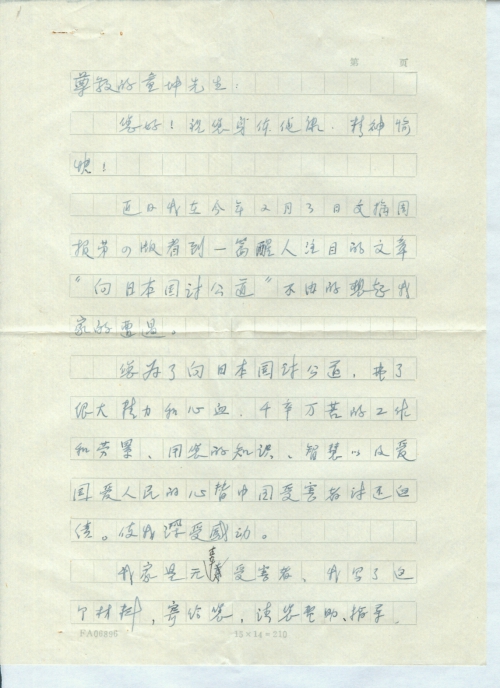 第 页
尊敬的童坤先生:
您好!祝您身体健康.精神愉
快!
近日我在今年2月3日文摘周
报第4版看到一篇醒人注目的文章
“向日本国讨公道”不由的想起我
家的遭遇。
您为了向日本国讨公道,费了
很大精力和心血.千辛万苦的工作
和劳累、用您的知识、智慧以及爱
国爱人民的心替中国受害者讨还血
债。使我深受感动。
我家是 受害者,我写了这
个材料,寄给您,请您帮助、指导.
15×14=210